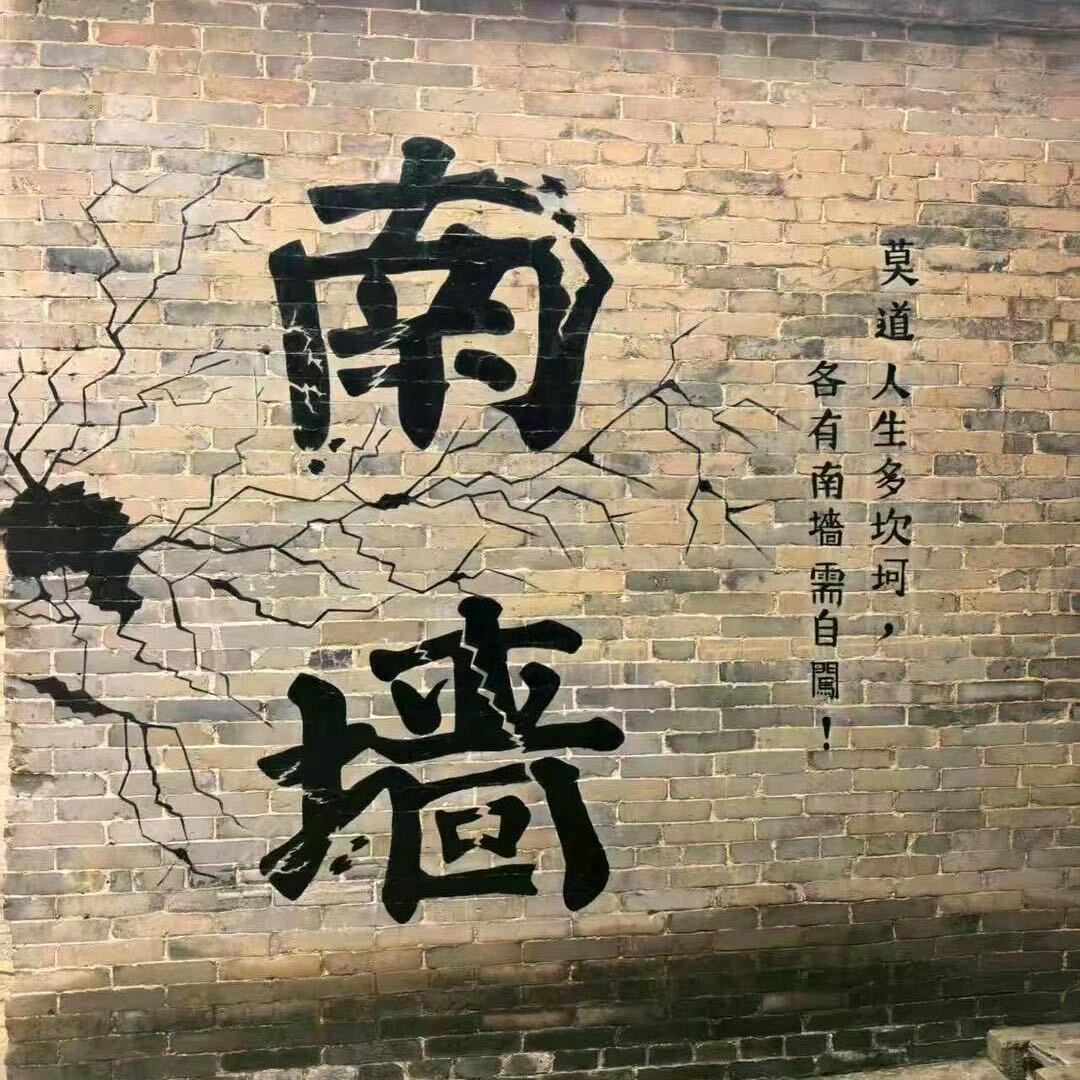 南墙
莫道人生多坎坷，
各有南墻需自闖！